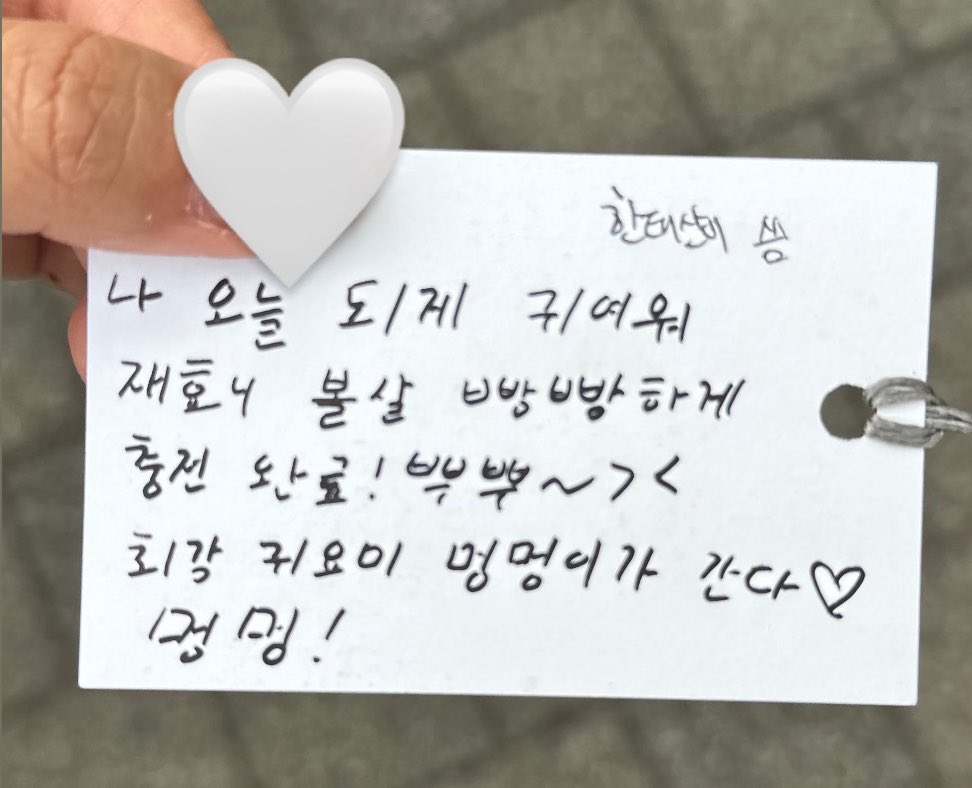 한태산이 씀
나 오늘 되게 귀여워
재효니 볼살 빵빵하게
충전 완료! 뿌뿌~><
최강 귀요미 멍멍이가 간다♡
멍멍!